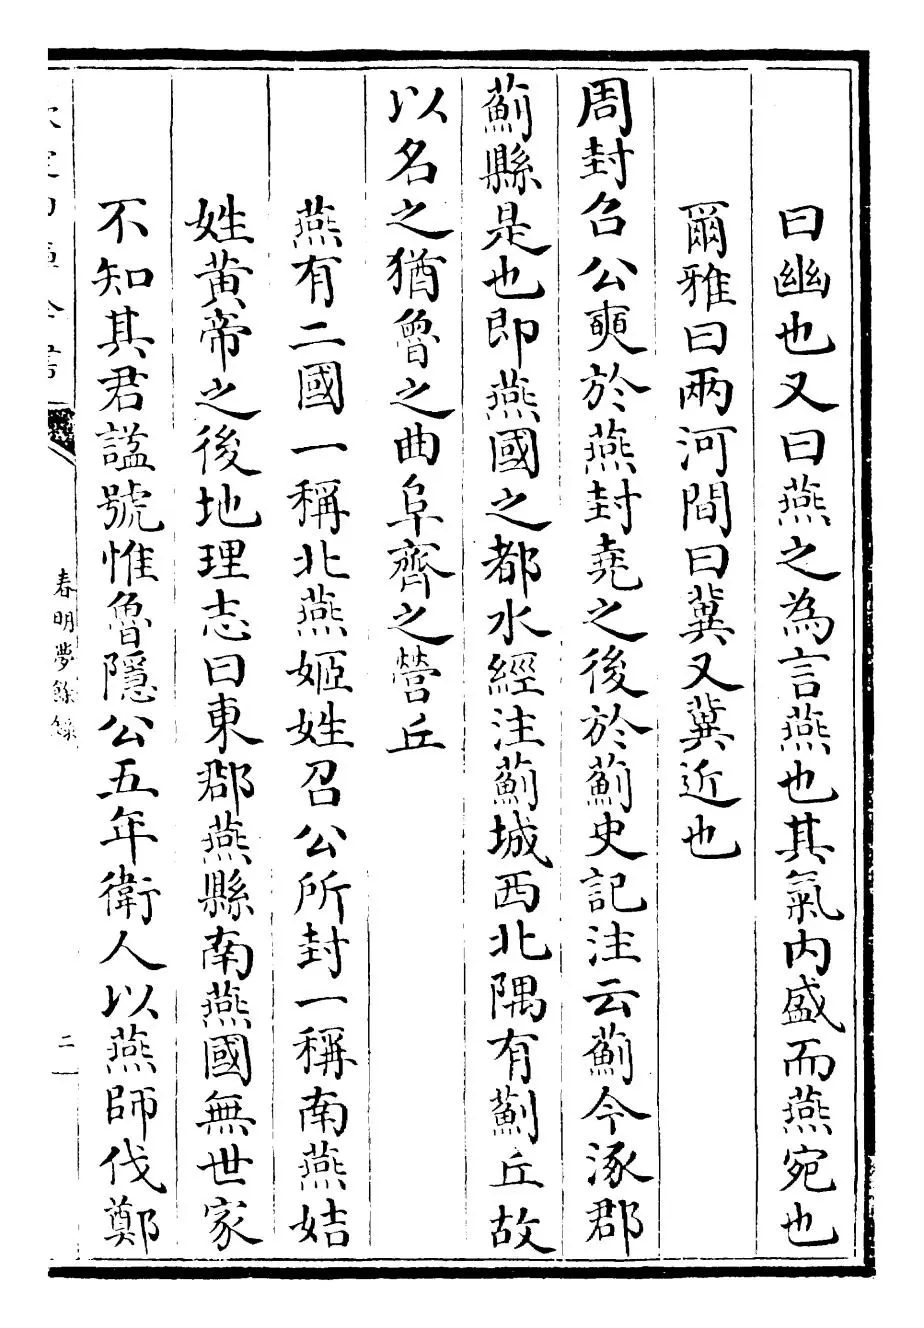 曰幽也又曰燕之為言燕也其氣内盛而燕宛也
爾雅曰兩河間曰冀又冀近也
周封召公奭於燕封堯之後於薊史記注云薊今涿郡
薊縣是也即燕國之都水經注薊城西北隅有薊丘故
以名之猶魯之曲阜齊之營丘
燕有二國一稱北燕姬姓召公所封一稱南燕姞
姓黄帝之後地理志曰東郡燕縣南燕國無世家
不知其君諡號惟魯隱公五年衛人以燕師伐鄭
春明夢餘錄
二